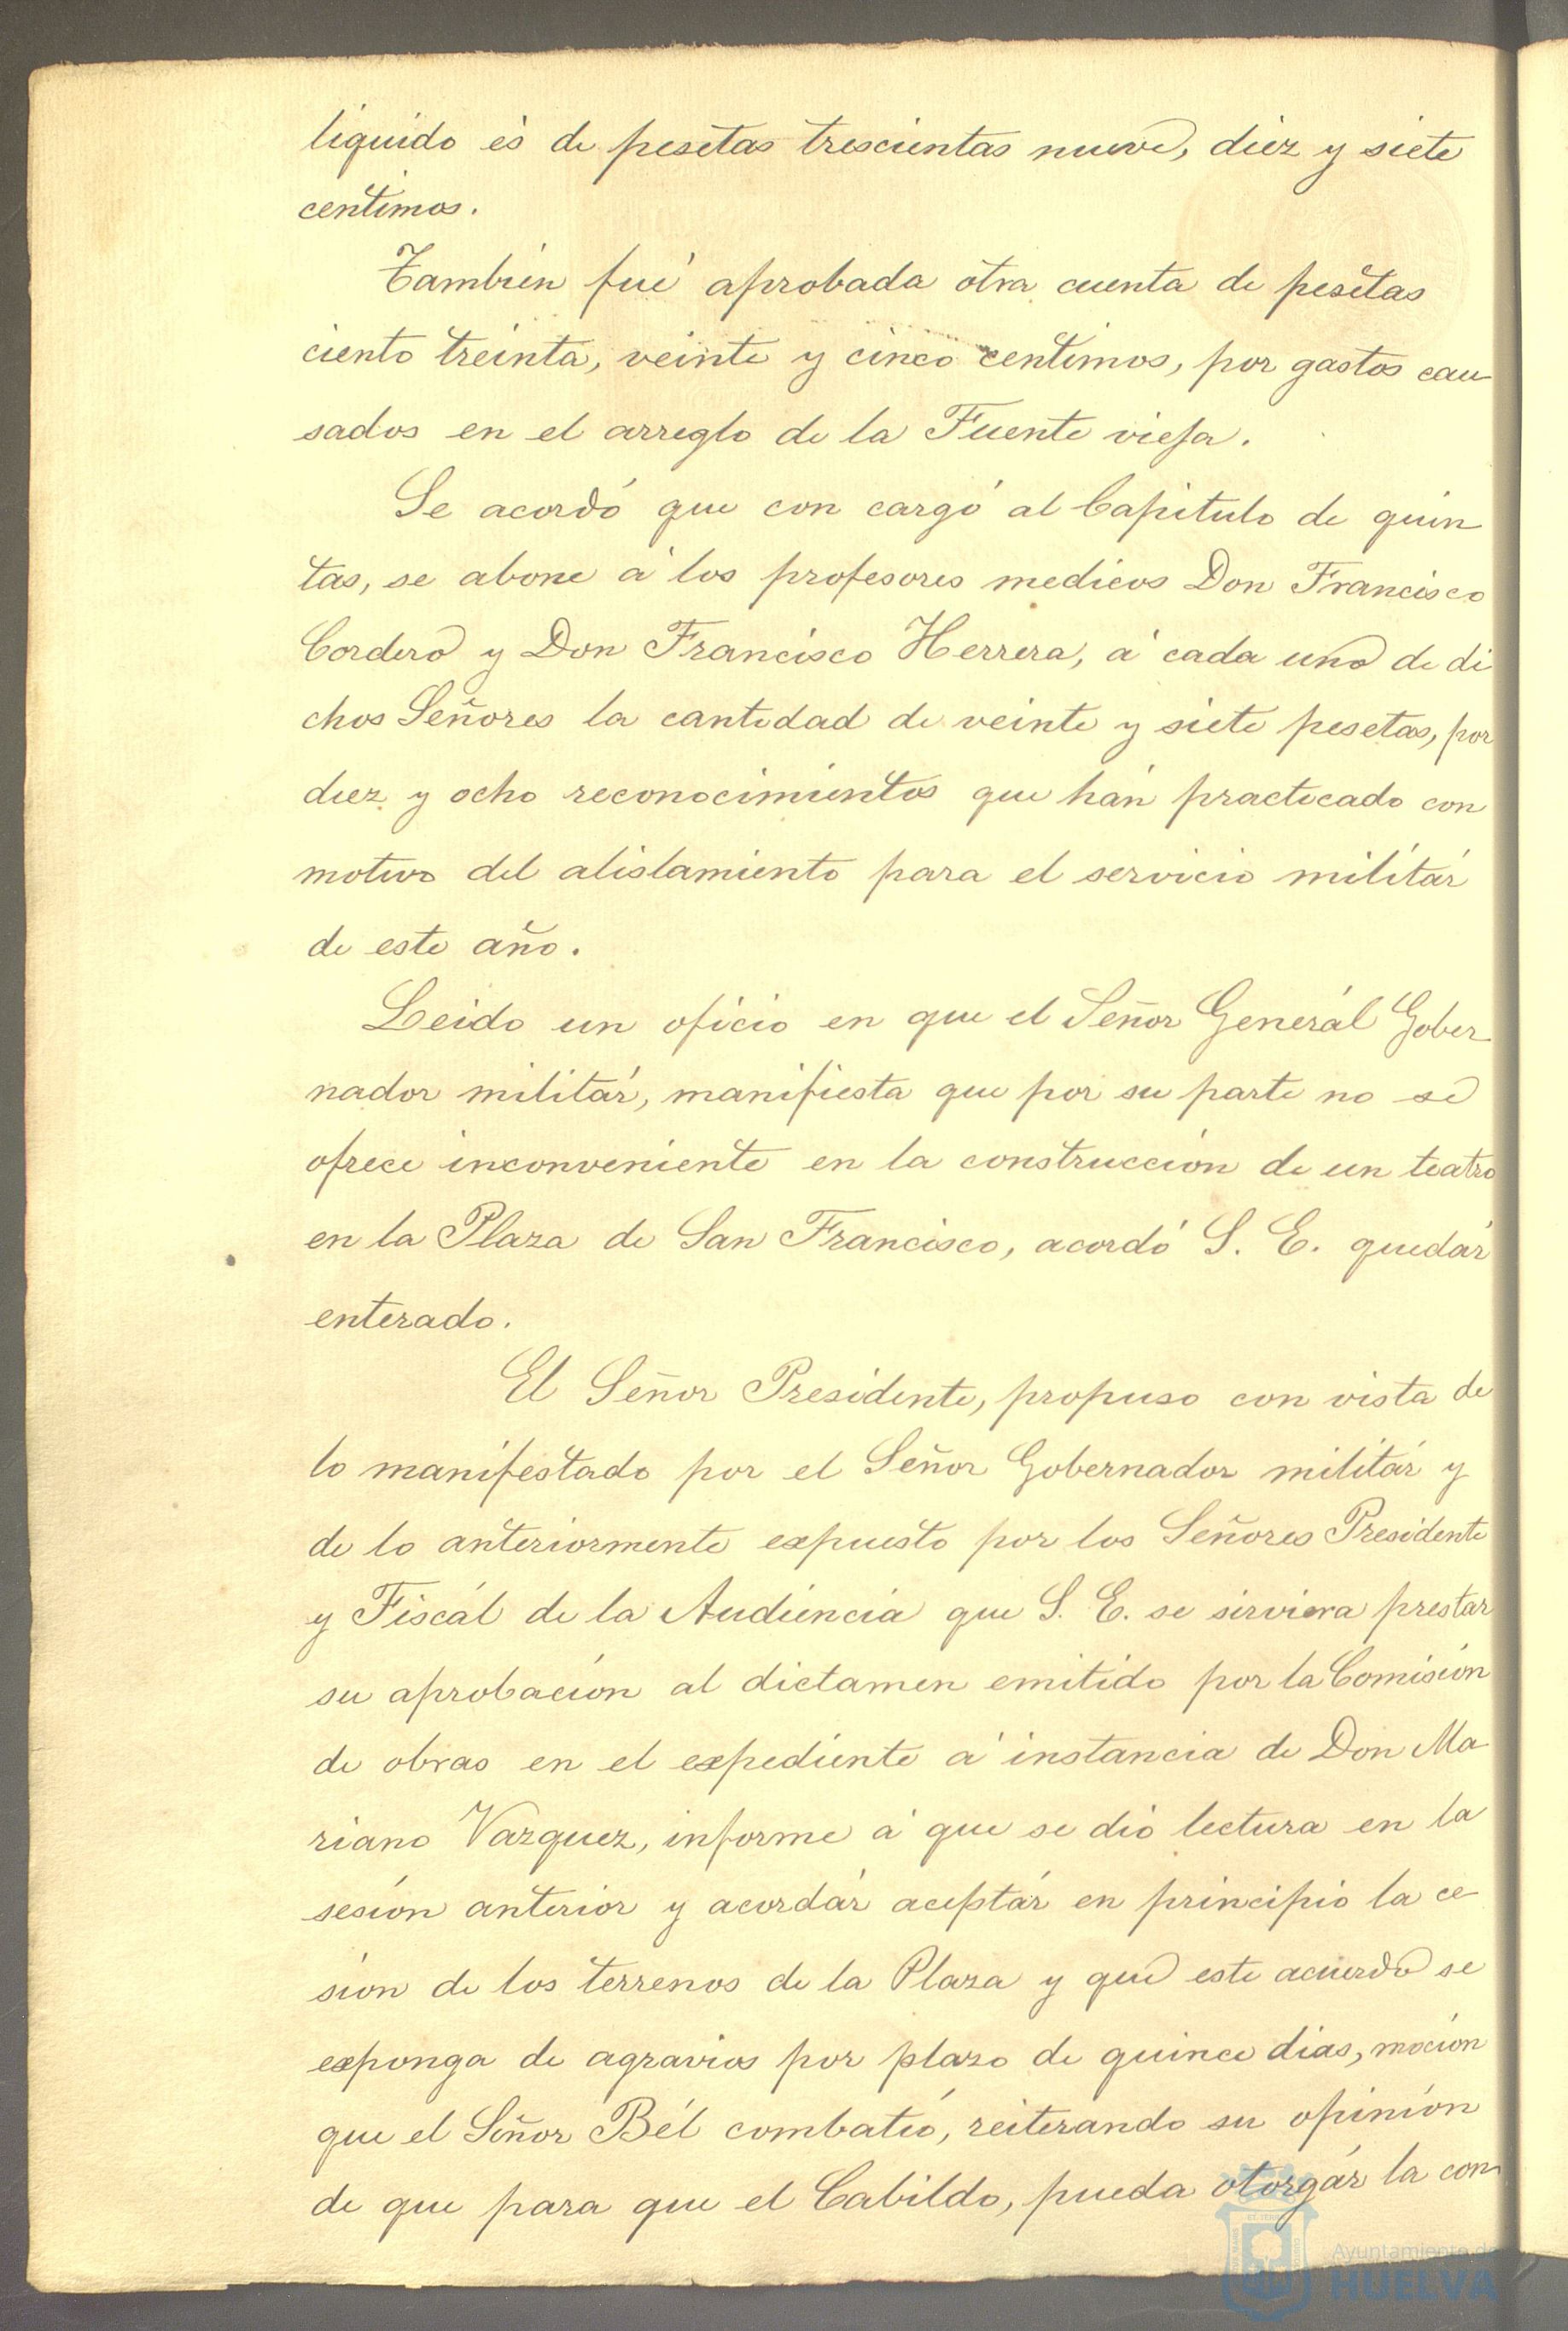 liquido és de pesetas trescientas nueve, diez y siete
centimos.
Tambien fué aprobada otra cuenta de pesetas
ciento treinta, veinte y cinco centimos, por gastos cau
sados en el arreglo de la Fuente vieja.
Se acordó que con cargo al Capitulo de quin
tas, se abone á los profesores medicos Don Francisco
Cordero y Don Francisco Herrera, á cada uno de di
chos Señores la cantidad de veinte y siete pesetas, por
diez y ocho reconocimientos que hán practicado con
motivo del alislamiento para el servicio militár
de este año.
Leido un oficio en que el Señor Generál Gober
nador militár, manifiesta que por su parte no se
ofrece inconveniente en la construccion de un teatro
en la Plaza de San Francisco, acordó S. E. quedár
enterado.
El Señor Presidente, propuso con vista de
lo manifestado por el Señor Gobernador militár y
de lo anteriormente expuesto por los Señores Presidente
y Fiscál de la Audiencia que S. E. se sirviera prestar
su aprobación al dictamen emitido por la Comisión
de obras en el expediente á instancia de Don Ma
riano Vazquez, informe á que se dió lectura en la
sesión anterior y acordár aceptár en principio la ce
sion de los terrenos de la Plaza y que este acuerdo se
exponga de agravios por plazo de quince dias, moción
que el Señor Bél combatió, reiterando su opinión
de que para que el Cabildo, pueda otorgár la con
Ayuntamiento de
HUELVA